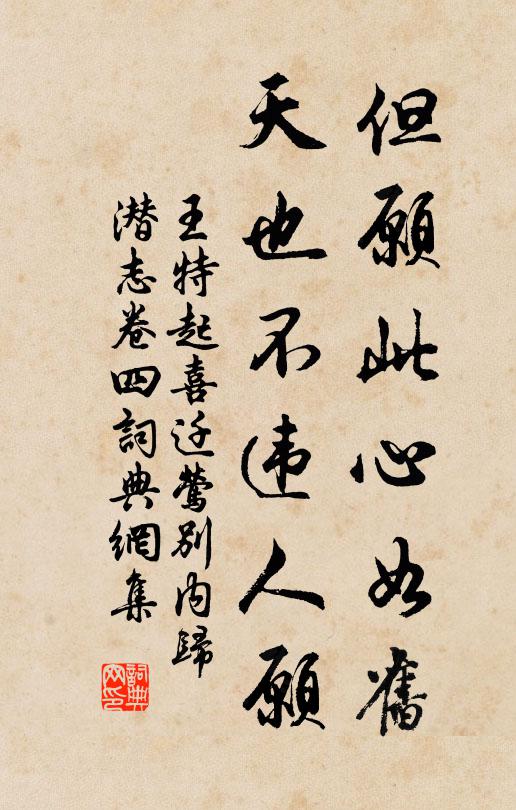 但願此心如舊
天也不违人願
王特起喜迁鶯別内歸
潜志卷四詞典網集
詞典
网印